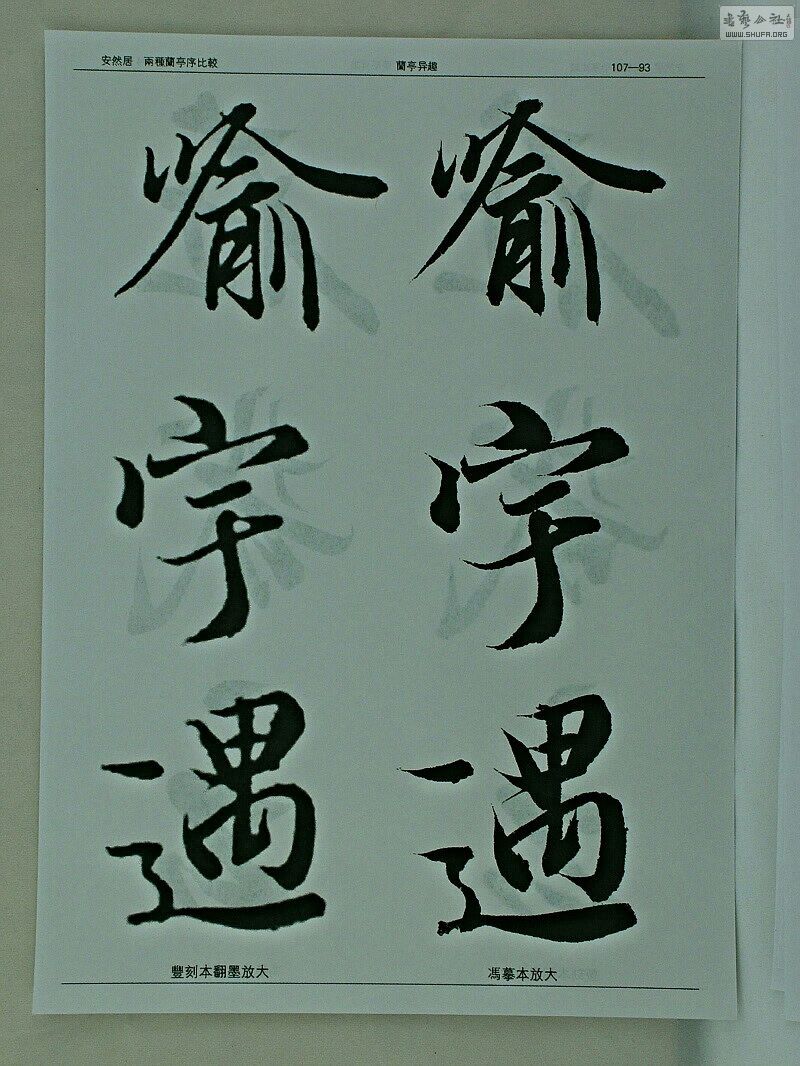 書藝公社
WWW.SHUFA.ORG
安然居 兩種蘭亭序比較 蘭亭异趣 107—93
喻 喻
字 字
遇 遇
豐刻本翻墨放大 馮摹本放大